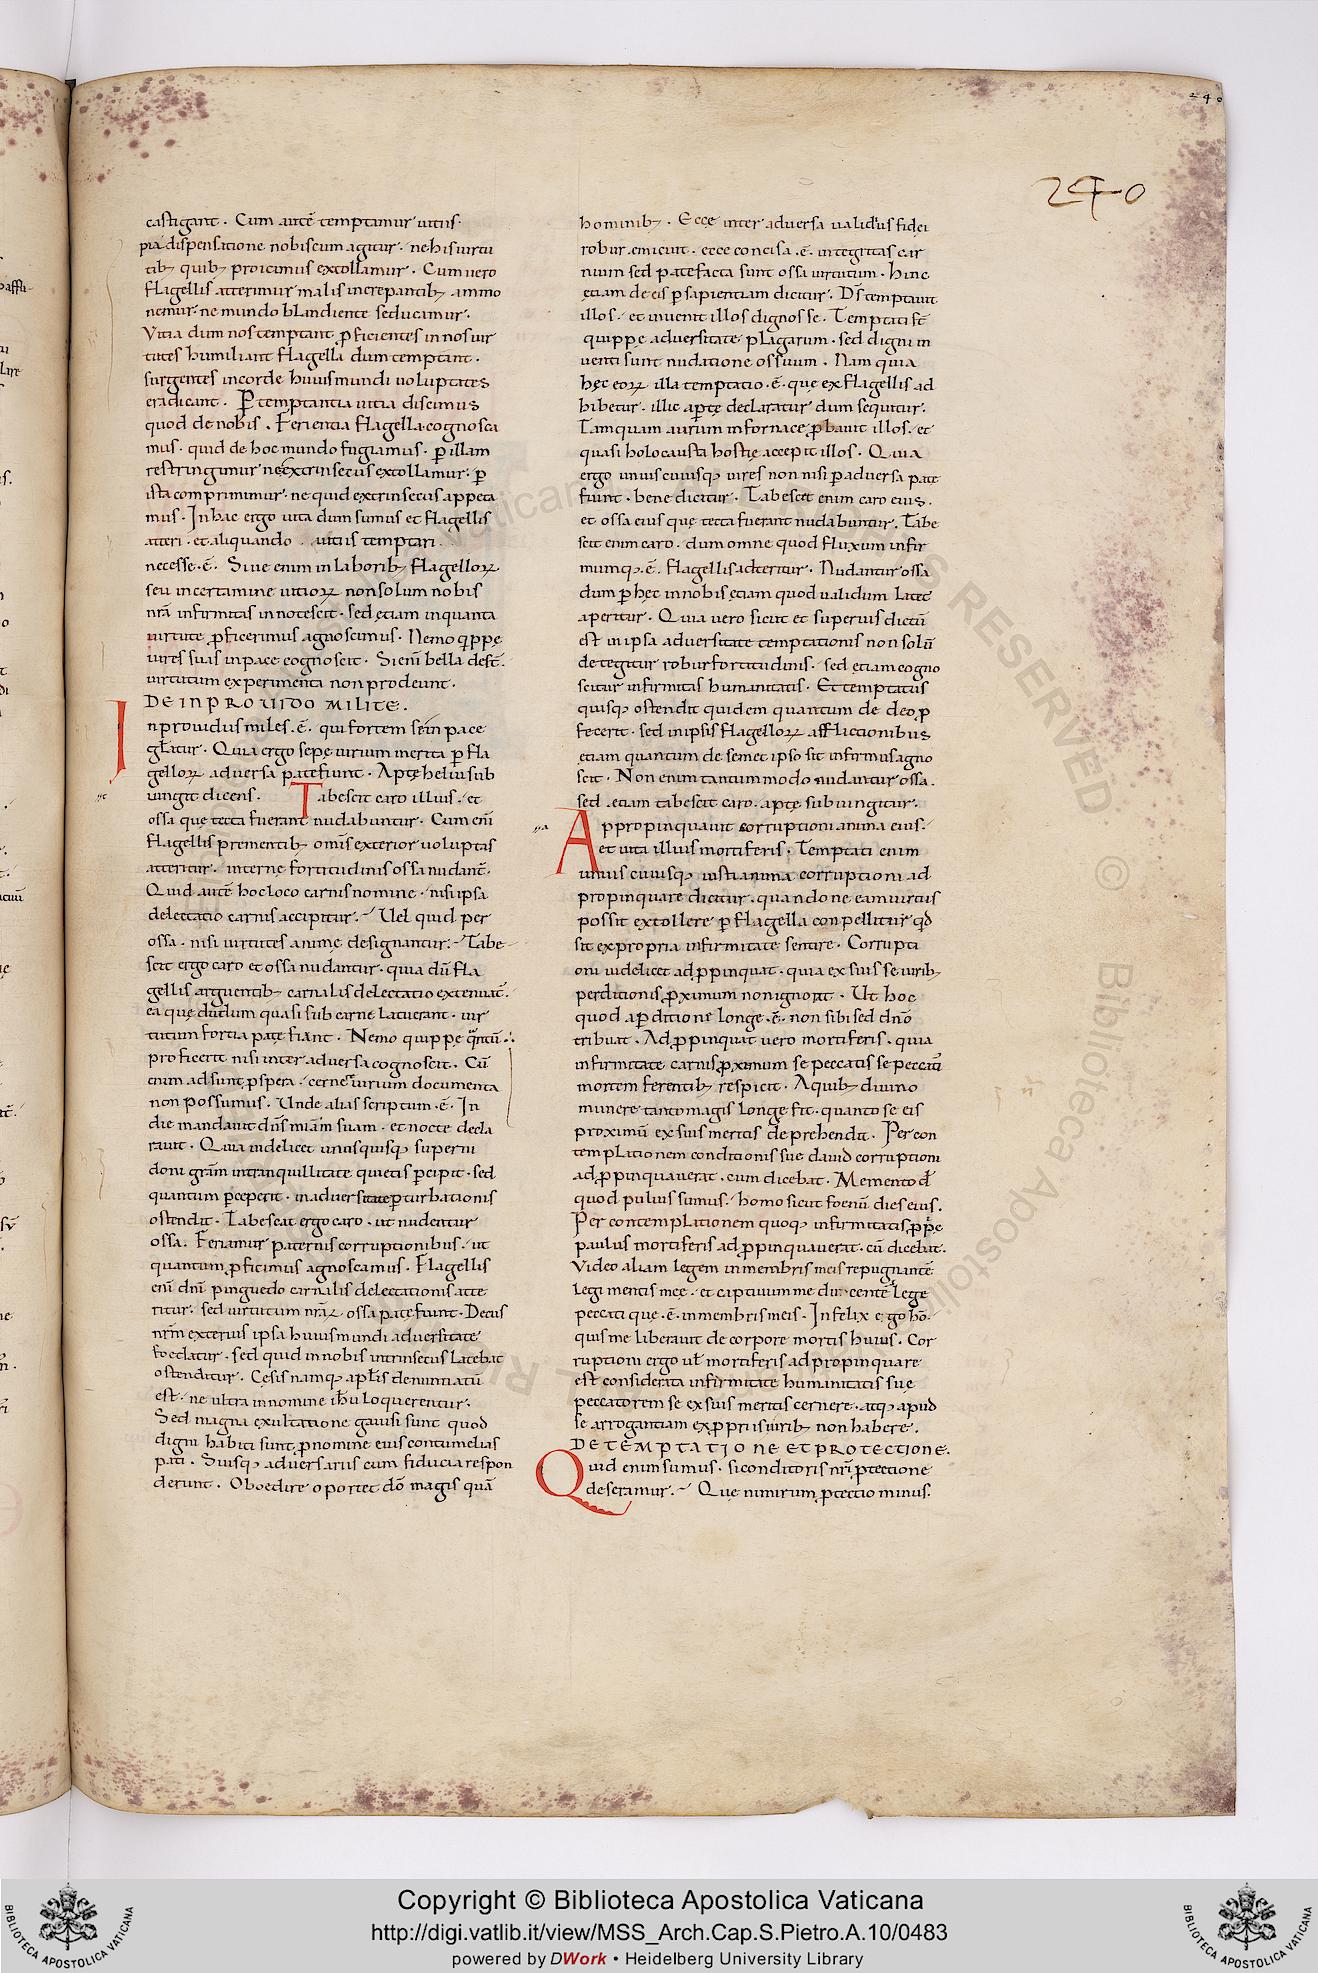 240
240
castigant . Cum autē temptamur uitiis
pia dispensatione nobiscum agitur . ne his uirtu
tib; quib; proicimus extollamur . Cum uero
flagellis atterimur malis increpantib; ammo
nemur . ne mundo blandiente seducamur .
Vitia dum nos temptant . ꝓficientes in nos uir
tutes humiliant flagella dum temptant .
surgentes in corde huius mundi uoluptates
eradicant . Ꝑ temptantia uitia discimus
quod de nobis . Ferientia flagella cognosca
mus . quid de hoc mundo fugiamus . ꝑ illam
restringimur ne extrinsecus extollamur . ꝑ
ista comprimimur . ne quid extrinsecus appeta
mus . In hac ergo uita dum sumus et flagellis
atteri . et aliquando . uitiis temptari .
necesse . ē . Siue enim in laborib; flagelloꝝ
seu in certamine uitioꝝ non solum nobis
nrā infirmitas innotescit . sed ętiam in quanta
uirtute ꝓficerimus agnoscimus . Nemo q̇ppę
uires suas in pace cognoscit . Si enī bella desт̄
uirtutum experimenta non prodeunt .
DE INPROVIDO MILITE .
Inprouidus miles . ē . qui fortem se in pace
gl̄atur . Quia ergo sepę uirium inertia ꝑ fla
gelloꝝ aduersa patefiunt . Aptę heliu sub
iungit dicens . Tabescit caro illius . et
ossa quę tecta fuerant nudabuntur . Cum enī
flagellis prementib; om̄is exterior uoluptas
atteritur . internę fortitudinis ossa nudant̄ .
Quid autē hoc loco carnis nomine . nisi ipsa
delectatio carnis accipitur . Vel quid per
ossa . nisi uirtutes animę designantur . Tabe
scit ergo caro et ossa nudantur . quia dū fla
gellis arguentib; carnalis delectatio extenuat̄ .
ea quę dudum quasi sub carne latuerant . uir
tutum fortia patefiant . Nemo quippę q̄ntū
profecerit nisi inter aduersa cognoscit . Cū
enim adsunt ꝓspera . cernere uirium documenta
non possumus . Unde alias scriptum . ē . In
die mandauit dn̄s miām suam . et nocte decla
rauit . Quia uidelicet unusquisq; superni
doni grām in tranquillitate quietis ꝑcipit . sed
quantum ꝑceperit . in aduersitate ꝑturbationis
ostendit . Tabescat ergo caro . ut nudentur
ossa . Feriamur paternis corruptionibus . ut
quantum ꝓficimus agnoscamus . Flagellis
enī dn̄i pinguedo carnalis delectationis atte
ritur . sed uirtutum nrāꝝ ossa patefiunt . Decus
nrm̄ exterius ipsa huius mundi aduersitate
foedatur . sed quid in nobis intrinsecus latebat
ostenditur . Cęsis namq; apl̄is denuntiatū
est . ne ultra in nomine ih̄u loquerentur .
Sed magna exultatione gauisi sunt quod
digni habiti sunt ꝓ nomine eius contumelias
pati . Suisq; aduersariis cum fiducia respon
derunt . Oboedire oportet dō magis quā
hominib; . Ecce inter aduersa ualidius fidei
robur emicuit . ecce concisa . ē . integritas car
nium sed patefacta sunt ossa uirtutum . Hinc
ętiam de eis ꝑ sapientiam dicitur . Dš temptauit
illos . et inuenit illos dignos se . Temptati sт̄
quippę aduersitate plagarum . sed digni in
uenti sunt nudatione ossuum . Nam quia
hęc eoꝝ illa temptatio . ē . quę ex flagellis ad
hibetur . illic apertę declaratur dum sequitur .
Tamquam aurum in fornace ꝓbauit illos . et
quasi holocausta hostię accepit illos . Quia
ergo unius cuiusq; uires non nisi ꝑ aduersa pate
fiunt . bene dicitur . Tabescet enim caro eius .
et ossa eius quę tecta fuerant nudabuntur . Tabe
scit enim caro . dum omne quod fluxum infir
mumq; . ē . flagellis adteritur . Nudantur ossa
dum ꝑ hęc in nobis ętiam quod ualidum latet
aperitur . Quia uero sicut et superius dictū
est in ipsa aduersitate temptationis non solū
detegitur robur fortitudinis . sed ętiam cogno
scitur infirmitas humanitatis . Et temptatus
quisq; ostendit quidem quantum de deo ꝓ
fecerit . sed in ipsis flagelloꝝ afflictionibus
ętiam quantum de semet ipso sit infirmus agno
scit . Non enim tantummodo nudantur ossa .
sed ętiam tabescit caro . aptę subiungitur .
Appropinquauit corruptioni anima eius .
et uita illius mortiferis . Temptati enim
unius cuiusq; iusti anima corruptioni ad
propinquare dicitur . quando ne eam uirtus
possit extollere ꝑ flagella conpellitur qd̄
sit ex propria infirmitate sentire . Corrupti
oni uidelicet adꝓpinquat . quia ex suis se uirib;
perditionis ꝓximum non ignorat . Ut hoc
quod a ꝑditione longe . ē . non sibi sed dn̄o
tribuat . Adꝓpinquat uero mortiferis . quia
infirmitate carnis ꝓximum se peccatis se peccatū
mortem ferentib; respicit . A quib; diuino
munere tanto magis longe fit . quanto se eis
proximū ex suis meritis deprehendit . Per con
templationem conditionis suę dauid corruptioni
adꝓpinquauerat . cum dicebat . Memento dn̄e
quod puluis sumus . homo sicut foenū dies eius .
Per contemplationem quoq; infirmitatis ꝓprię
paulus mortiferis adꝓpinquauerat . cū dicebat .
Video aliam legem in membris meis repugnantē
legi mentis meę . et captiuum me ducentē lege
peccati quę . ē . in membris meis . Infelix ego hō .
quis me liberauit de corpore mortis huius . Cor
ruptioni ergo ul̄ mortiferis adpropinquare
est considerata infirmitate humanitatis suę
peccatorem se ex suis meritis cernere . atq; apud
se arrogantiam ex ꝓpriis uirib; non habere .
DE TEMPTATIONE ET PROTECTIONE .
Quid enim sumus . si conditoris nrī ꝓtectione
deseramur . Quę nimirum ꝓtectio minus .
Copyright © Biblioteca Apostolica Vaticana
http://digi.vatlib.it/view/MSS_Arch.Cap.S.Pietro.A.10/0483
powered by DWork • Heidelberg University Library